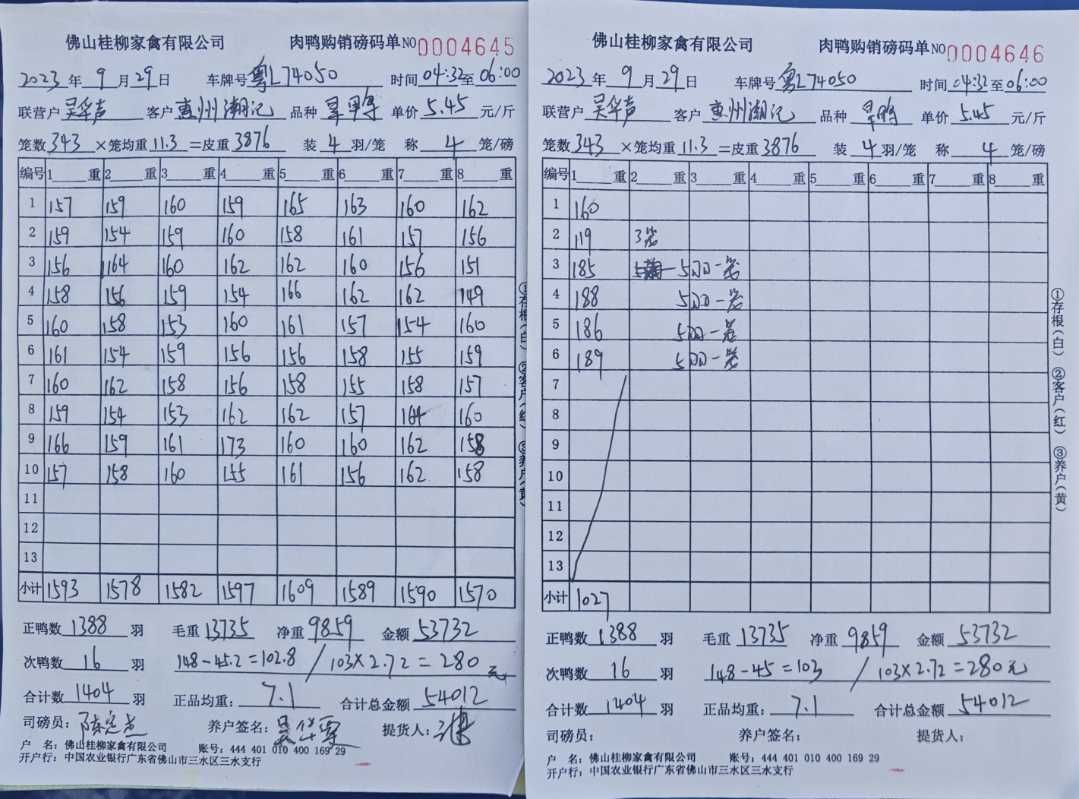 佛山桂柳家禽有限公司 肉鸭购销磅码单 NO 0004645
2023年9月29日 车牌号粤L74050 时间04:32至06:00
联营户 吴华声 客户 惠州潮记 品种 单价5.45元/斤
笼数343×笼均重11.3=皮重3876 装4羽/笼 称4笼/磅
编号 1重 2重 3重 4重 5重 6重 7重 8重
1 157 159 160 159 165 163 160 162
2 159 154 159 160 158 161 157 156
3 156 164 160 162 162 160 156 151
4 158 156 159 154 166 162 162 149
5 160 158 153 160 161 157 154 160
6 161 154 159 156 156 158 155 159
7 160 162 158 156 158 155 158 157
8 159 154 153 162 162 157 164 160
9 166 159 161 173 160 160 162 158
10 157 158 160 155 161 156 162 158
11
12
13
小计 1593 1578 1582 1597 1609 1589 1590 1570
正鸭数1388羽 毛重13735 净重9859 金额53732
次鸭数16羽 148-45.2=102.8 / 103×2.72=280元
合计数1404羽 正品均重:7.1 合计总金额54012
司磅员: 养户签名: 提货人:
户 名:佛山桂柳家禽有限公司 账号:444 401 010 400 169 29
开户行:中国农业银行广东省佛山市三水区三水支行
①存根(白) ②客户(红) ③养户(黄)
佛山桂柳家禽有限公司 肉鸭购销磅码单 NO 0004646
2023年9月29日 车牌号粤L74050 时间04:32至06:00
联营户 吴华声 客户 惠州潮记 品种 单价5.45元/斤
笼数343×笼均重11.3=皮重3876 装4羽/笼 称4笼/磅
编号 1重 2重 3重 4重 5重 6重 7重 8重
1 160
2 119 3笼
3 185 5羽一笼
4 188 5羽一笼
5 186 5羽一笼
6 189 5羽一笼
7
8
9
10
11
12
13
小计 1027
正鸭数1388羽 毛重13735 净重9859 金额53732
次鸭数16羽 148-45=103 / 103×2.72=280元
合计数1404羽 正品均重:7.1 合计总金额54012
司磅员: 养户签名: 提货人:
户 名:佛山桂柳家禽有限公司 账号:444 401 010 400 169 29
开户行:中国农业银行广东省佛山市三水区三水支行
①存根(白) ②客户(红) ③养户(黄)